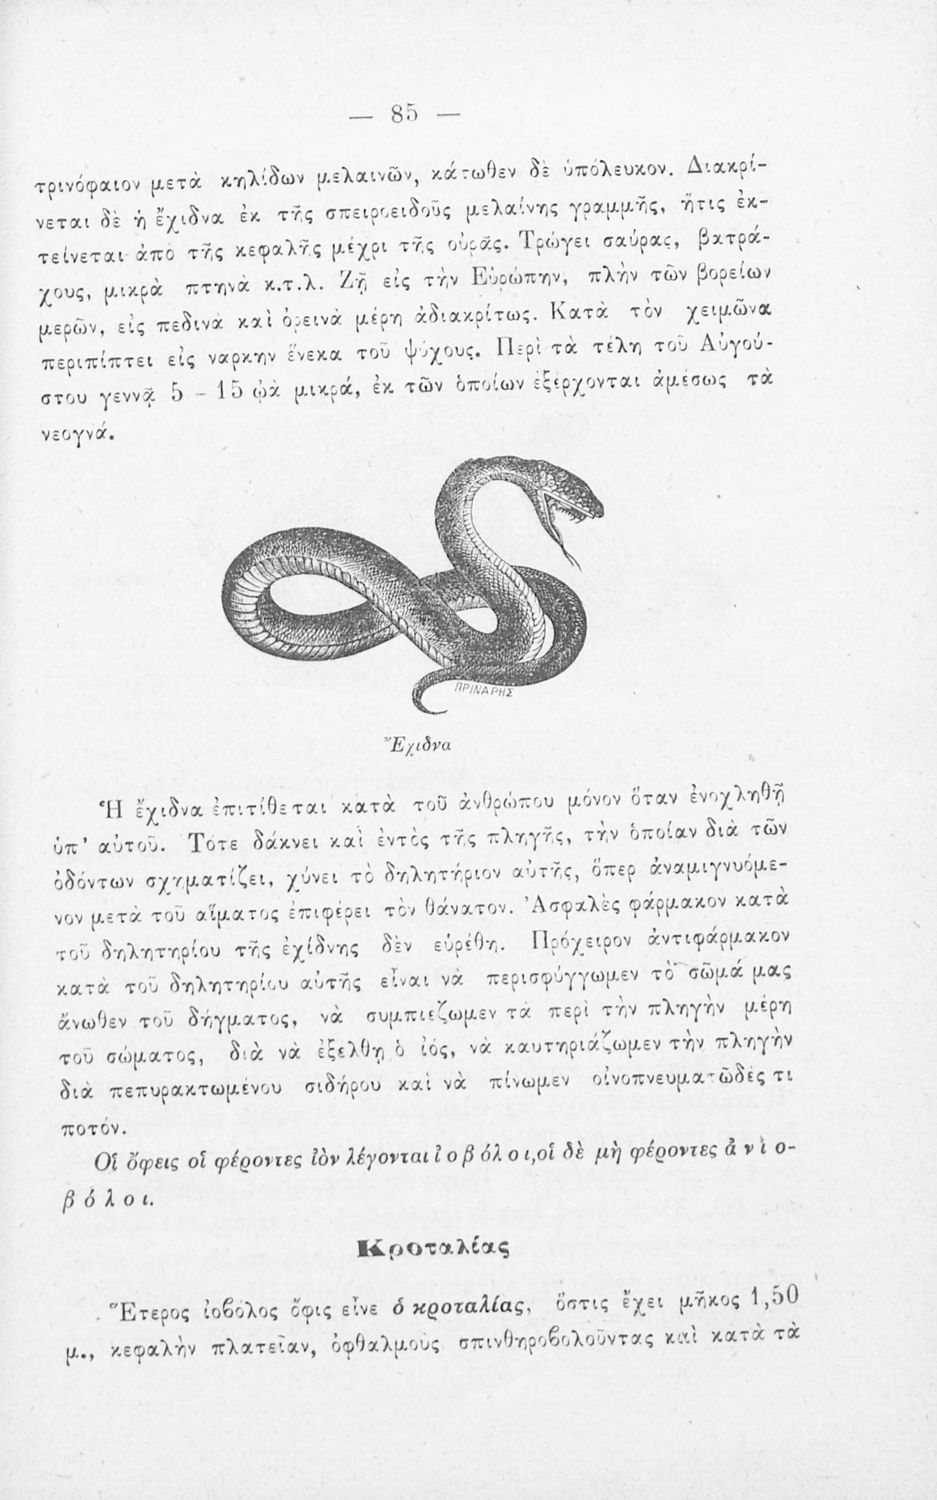 — 85 —
τρινόφαιον μετὰ κηλίδων μελαινῶν, κάτωθεν δὲ ὑπόλευκον. Διακρί-
νεται δὲ ἡ ἔχιδνα ἐκ τῆς σπειροειδοῦς μελαίνης γραμμῆς, ἥτις ἐκ-
τείνεται ἀπὸ τῆς κεφαλῆς μέχρι τῆς οὐρᾶς. Τρώγει σαύρας, βατρά-
χους, μικρὰ πτηνὰ κ.τ.λ. Ζῇ εἰς τὴν Εὐρώπην, πλὴν τῶν βορείων
μερῶν, εἰς πεδινὰ καὶ ὀρεινὰ μέρη ἀδιακρίτως. Κατὰ τὸν χειμῶνα
περιπίπτει εἰς ναρκην ἕνεκα τοῦ ψύχους. Περὶ τὰ τέλη τοῦ Αὐγού-
στου γεννᾷ 5 – 15 ᾠὰ μικρά, ἐκ τῶν ὁποίων ἐξέρχονται ἀμέσως τὰ
νεογνά.
ΠΡΙΝΑΡΗΣ
Ἔχιδνα
Ἡ ἔχιδνα ἐπιτίθεται κατὰ τοῦ ἀνθρώπου μόνον ὅταν ἐνοχληθῇ
ὑπ' αὐτοῦ. Τότε δάκνει καὶ ἐντὸς τῆς πληγῆς, τὴν ὁποίαν διὰ τῶν
ὀδόντων σχηματίζει, χύνει τὸ δηλητήριον αὐτῆς, ὅπερ ἀναμιγνυόμε-
νον μετὰ τοῦ αἵματος ἐπιφέρει τὸν θάνατον. Ἀσφαλὲς φάρμακον κατὰ
τοῦ δηλητηρίου τῆς ἐχίδνης δὲν εὑρέθη. Πρόχειρον ἀντιφάρμακον
κατὰ τοῦ δηλητηρίου αὐτῆς εἶναι νὰ περισφύγγωμεν τὸ σῶμά μας
ἄνωθεν τοῦ δήγματος, νὰ συμπιέζωμεν τὰ περὶ τὴν πληγὴν μέρη
τοῦ σώματος, διὰ νὰ ἐξέλθῃ ὁ ἰός, νὰ καυτηριάζωμεν τὴν πληγὴν
διὰ πεπυρακτωμένου σιδήρου καὶ νὰ πίνωμεν οἰνοπνευματῶδές τι
ποτόν.
Οἱ ὄφεις οἱ φέροντες ἰὸν λέγονται ἰ ο β ό λ ο ι, οἱ δὲ μὴ φέροντες ἀ ν ι ο-
β ό λ ο ι.
Κροταλίας
Ἕτερος ἰοβόλος ὄφις εἶνε ὁ κροταλίας, ὅστις ἔχει μῆκος 1,50
μ., κεφαλὴν πλατεῖαν, ὀφθαλμοὺς σπινθηροβολοῦντας καὶ κατὰ τὰ